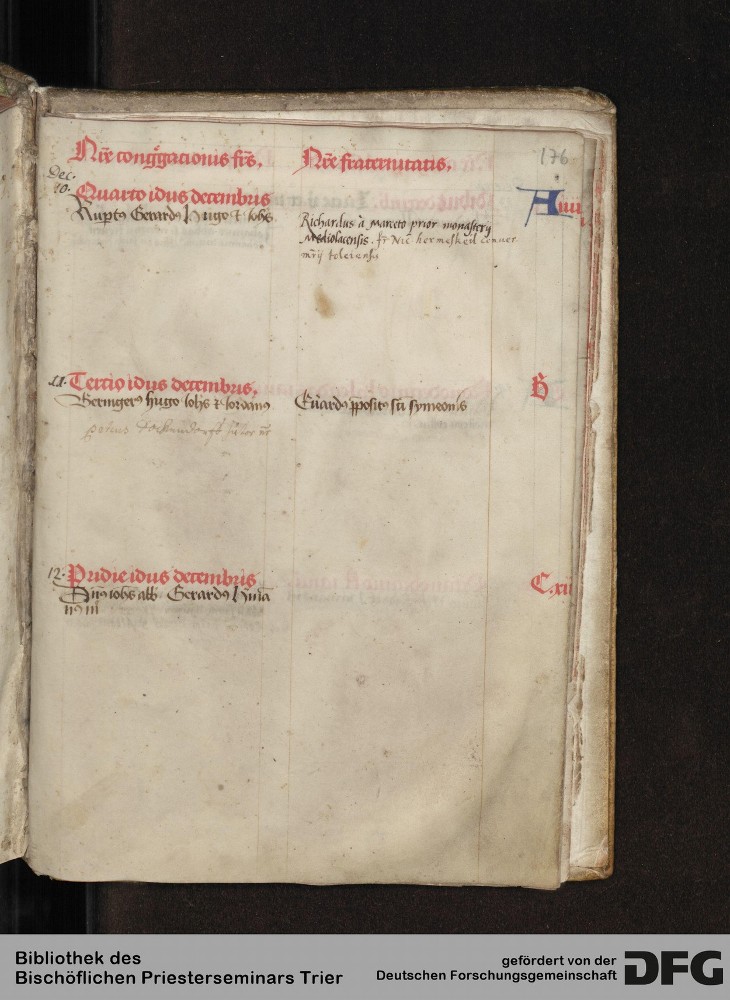 Nr̄e congg̃acionis fr̄s. Nr̄e fraternitatis. 176
Dec.
10. Quarto idus decembris A iiii
Rupt9 Gerard9 Hugo & Iohs̄
Richardus à Mareto prior monastery
Mediolacensis. fr̄ Nic̄ hermeskeil conuer
mr̄ij
11. Tercio idus decembris. B
Beringer9 hugo Iohs̄ & Iordan9 Eu̅ard9 p̄posit9 sc̄i symeonis
12. Pridie idus decembris C. xii
iohs̄ abb Gerard9
Bibliothek des
Bischöflichen Priesterseminars Trier
gefördert von der
Deutschen Forschungsgemeinschaft DFG